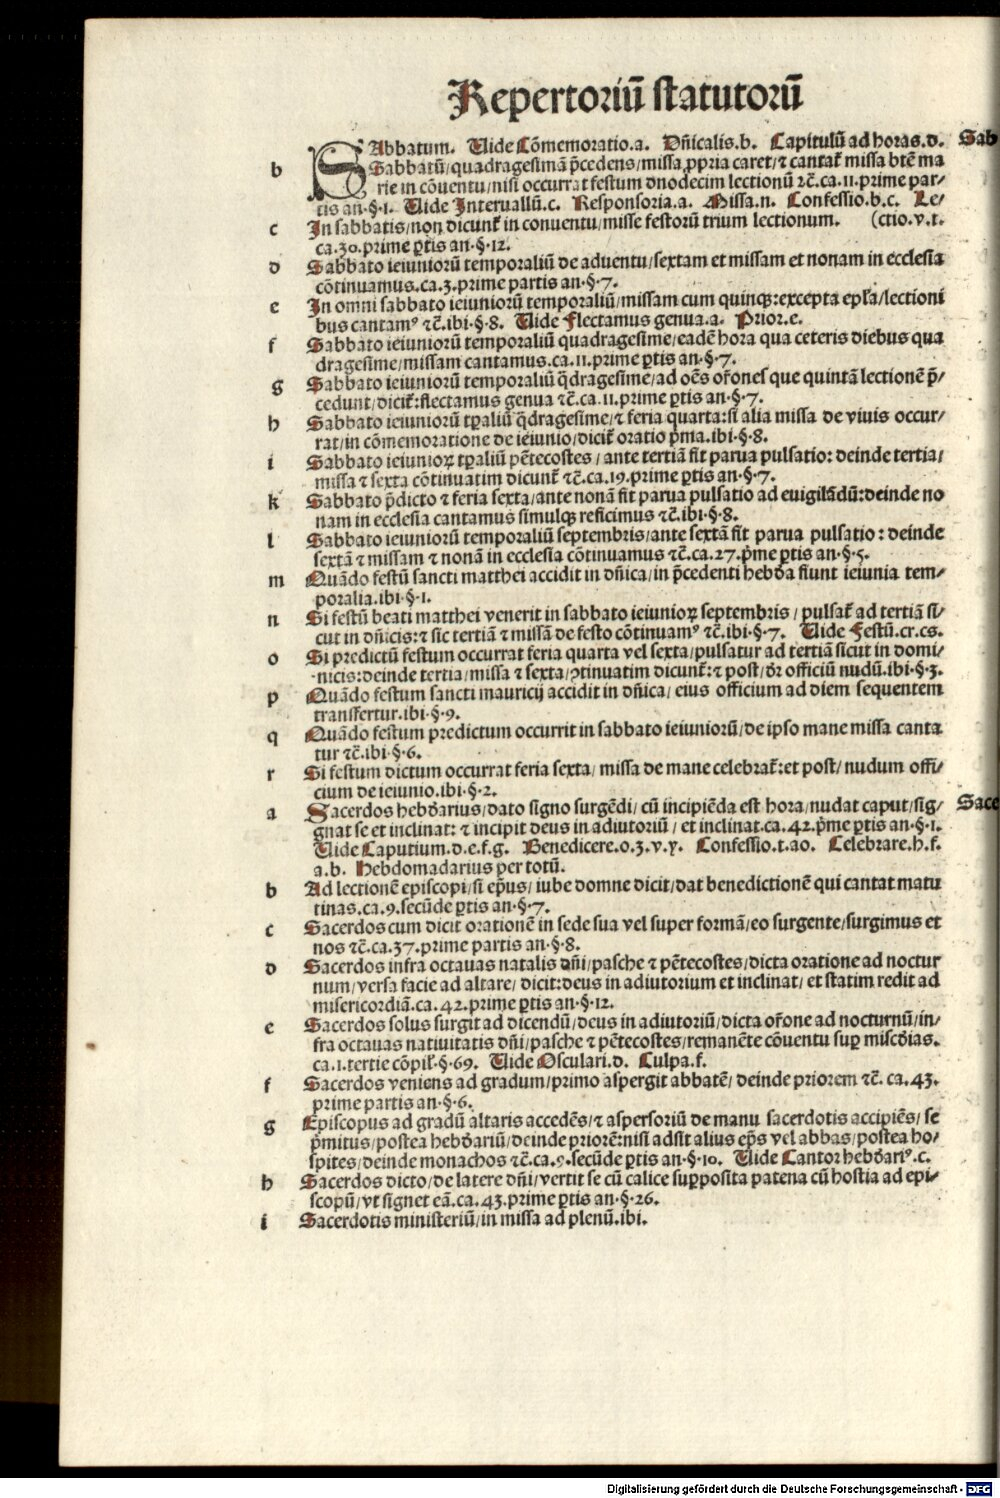 Repertoriū statutorū
SAbbatum. Vide Cōmemoratio.a. Dñicalis.b. Capitulū ad horas.d. Sab
b Sabbatū/quadragesimā p̄cedens/missa ꝓpria caret/⁊ cantat᷑ missa btē ma
rie in cōuentu/nisi occurrat festum duodecim lectionū ⁊c̄.ca.11.prime par⸗
tis an·§·1. Vide Interuallū.c. Responsoria.a. Missa.n. Confessio.b.c. Le⸗
c In sabbatis/non dicunt᷑ in conuentu/misse festorū trium lectionum. (ctio.v.t.
ca.30.prime ꝑtis an·§·12.
d Sabbato ieiuniorū temporaliū de aduentu/sextam et missam et nonam in ecclesia
cōtinuamus.ca.3.prime partis an·§·7.
e In omni sabbato ieiuniorū temporaliū/missam cum quinqꝫ:excepta epl̄a/lectioni
bus cantamꝰ ⁊c̄.ibi·§·8. Vide Flectamus genua.a. Prior.e.
f Sabbato ieiuniorū temporaliū quadragesime/eadē hora qua ceteris diebus qua
dragesime/missam cantamus.ca.11.prime ꝑtis an·§·7.
g Sabbato ieiuniorū temporaliū q̄dragesime/ad oēs or̄ones que quintā lectionē p̄⸗
cedunt/dicit᷑:flectamus genua ⁊c̄.ca.11.prime ꝑtis an·§·7.
h Sabbato ieiuniorū tꝑaliū q̄dragesime/⁊ feria quarta:si alia missa de viuis occur⸗
rat/in cōmemoratione de ieiunio/dicit᷑ oratio p̄ma.ibi·§·8.
i Sabbato ieiunioꝝ tꝑaliū pētecostes/ante tertiā fit parua pulsatio: deinde tertia/
missa ⁊ sexta cōtinuatim dicunt᷑ ⁊c̄.ca.19.prime ꝑtis an·§·7.
k Sabbato p̄dicto ⁊ feria sexta/ante nonā fit parua pulsatio ad euigilādū:deinde no
nam in ecclesia cantamus simulqꝫ reficimus ⁊c̄.ibi·§·8.
l Sabbato ieiuniorū temporaliū septembris/ante sextā fit parua pulsatio: deinde
sextā ⁊ missam ⁊ nonā in ecclesia cōtinuamus ⁊c̄.ca.27.p̄me ꝑtis an·§·5.
m Quādo festū sancti matthei accidit in dñica/in p̄cedenti hebd̄a fiunt ieiunia tem⸗
poralia.ibi·§·1.
n Si festū beati matthei venerit in sabbato ieiunioꝝ septembris/pulsat᷑ ad tertiā si⸗
cut in dñicis:⁊ sic tertiā ⁊ missā de festo cōtinuamꝰ ⁊c̄.ibi·§·7. Vide Festū.cr.cs.
o Si predictū festum occurrat feria quarta vel sexta/pulsatur ad tertiā sicut in domi⸗
nicis:deinde tertia/missa ⁊ sexta/ꝯtinuatim dicunt᷑:⁊ post/dr̄ officiū nudū.ibi·§·3.
p Quādo festum sancti mauricij accidit in dñica/eius officium ad diem sequentem
transfertur.ibi·§·9.
q Quādo festum predictum occurrit in sabbato ieiuniorū/de ipso mane missa canta
tur ⁊c̄.ibi·§·6.
r Si festum dictum occurrat feria sexta/missa de mane celebrat᷑:et post/nudum offi⸗
cium de ieiunio.ibi·§·2.
a Sacerdos hebd̄arius/dato signo surgēdi/cū incipiēda est hora/nudat caput/sig⸗ Sace
gnat se et inclinat: ⁊ incipit deus in adiutoriū/et inclinat.ca.42.p̄me ꝑtis an·§·1.
Vide Caputium.d.e.f.g. Benedicere.o.3.v.x. Confessio.t.ao. Celebrare.h.f.
a.b. Hebdomadarius per totū.
b Ad lectionē episcopi/si ep̄us/iube domne dicit/dat benedictionē qui cantat matu
tinas.ca.9.secūde ꝑtis an·§·7.
c Sacerdos cum dicit orationē in sede sua vel super formā/eo surgente/surgimus et
nos ⁊c̄.ca.37.prime partis an·§·8.
d Sacerdos infra octauas natalis dñi/pasche ⁊ pētecostes/dicta oratione ad noctur
num/versa facie ad altare/dicit:deus in adiutorium et inclinat/et statim redit ad
misericordiā.ca.42.prime ꝑtis an·§·12.
e Sacerdos solus surgit ad dicendū/deus in adiutoriū/dicta or̄one ad nocturnū/in⸗
fra octauas natiuitatis dñi/pasche ⁊ pētecostes/remanēte cōuentu suꝑ misc̄dias.
ca.1.tertie cōpil᷑·§·69. Vide Osculari.d. Culpa.f.
f Sacerdos veniens ad gradum/primo aspergit abbatē/deinde priorem ⁊c̄. ca.43.
prime partis an·§·6.
g Episcopus ad gradū altaris accedēs/⁊ aspersoriū de manu sacerdotis accipiēs/se
p̄mitus/postea hebd̄ariū/deinde priorē:nisi adsit alius ep̄s vel abbas/postea ho⸗
spites/deinde monachos ⁊c̄.ca.9.secūde ꝑtis an·§·10. Vide Cantor hebd̄ariꝰ.c.
h Sacerdos dicto/de latere dñi/vertit se cū calice suꝑposita patena cū hostia ad epi⸗
scopū/vt signet eā.ca.43.prime ꝑtis an·§·26.
i Sacerdotis ministeriū/in missa ad plenū.ibi.
Digitalisierung gefördert durch die Deutsche Forschungsgemeinschaft - DFG